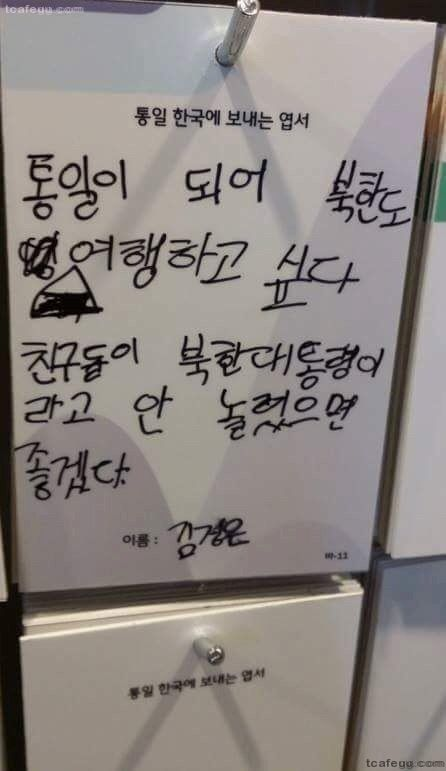 tcafegg.com
통일 한국에 보내는 엽서
통일이 되어 북한도
여행하고 싶다
친구들이 북한대통령이
라고 안 놀렸으면
좋겠다.
이름 : 김정은
III-11
통일 한국에 보내는 엽서
tcafegg.com